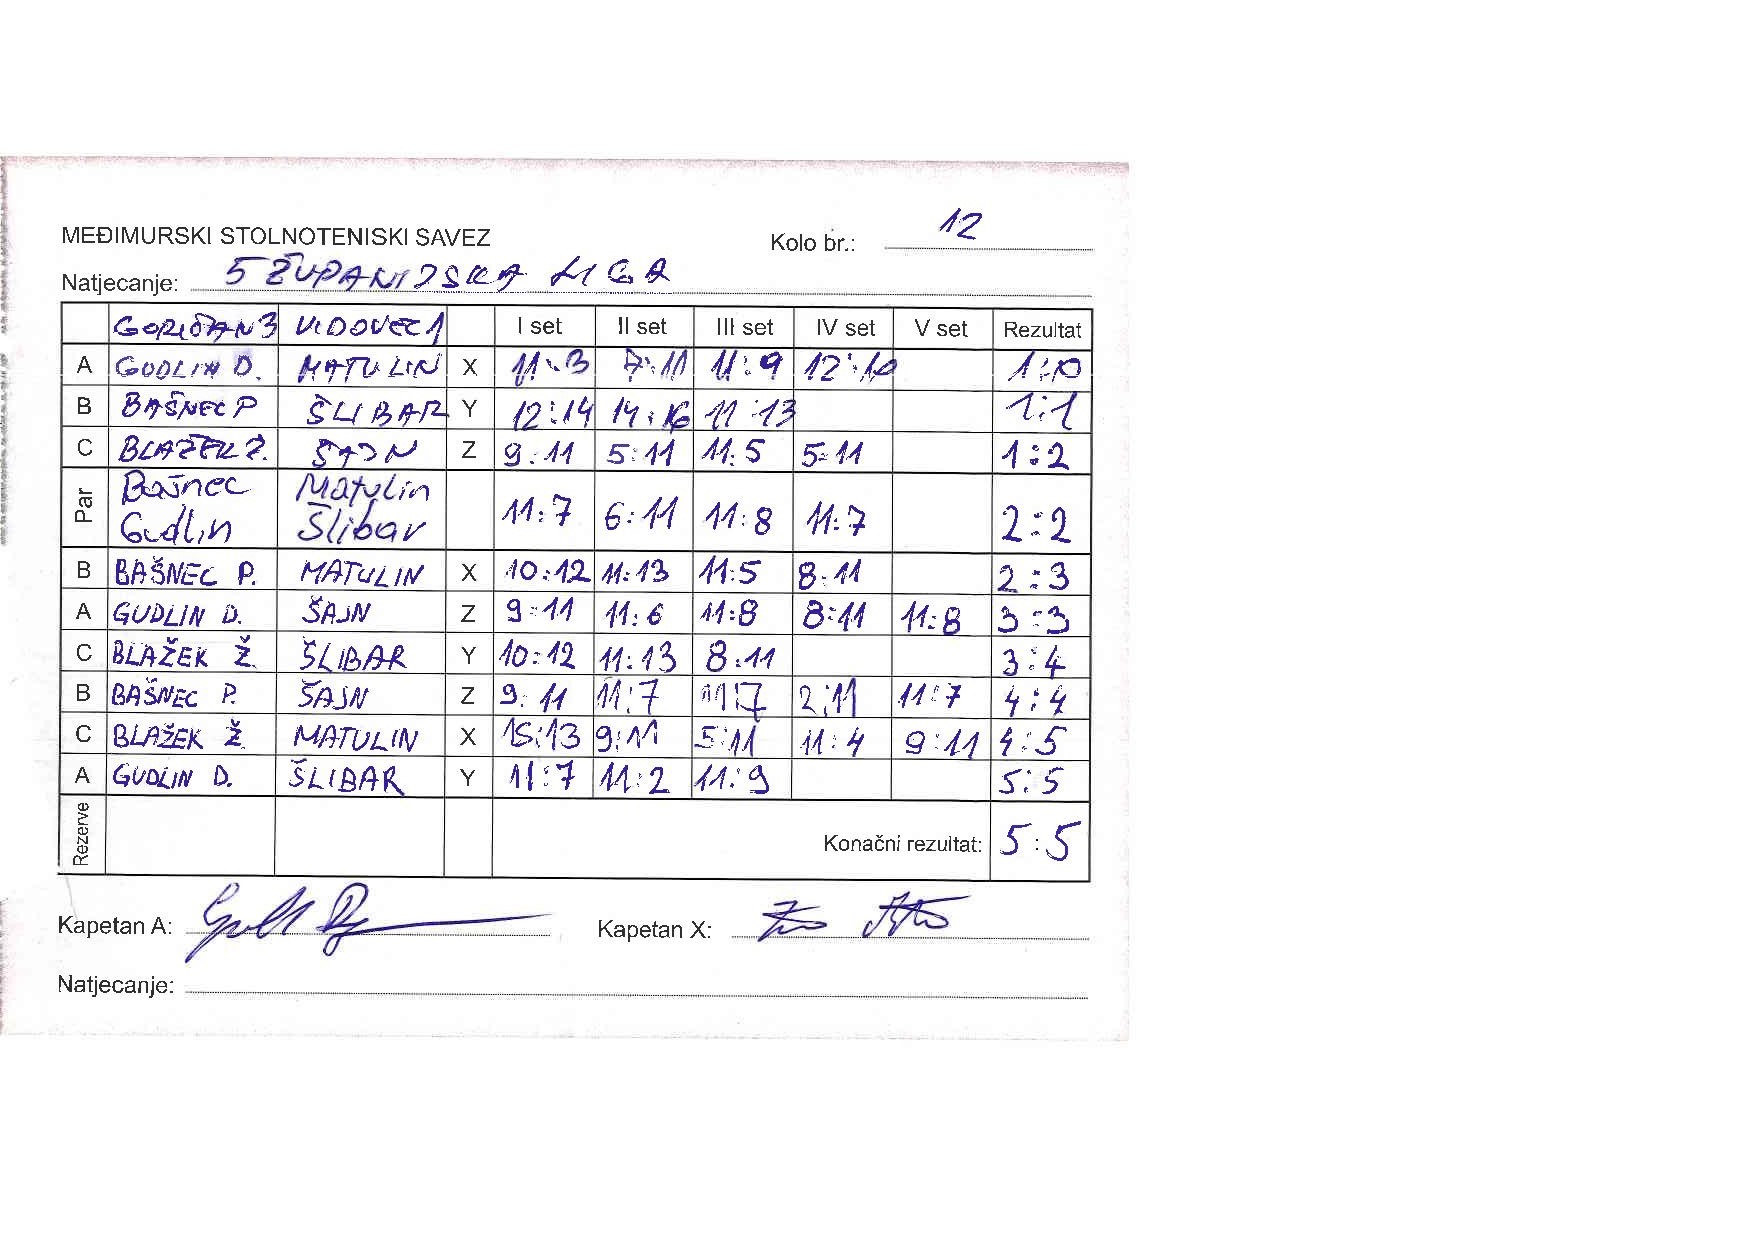 MEĐIMURSKI STOLNOTENISKI SAVEZ Kolo br.: 12
Natjecanje: 5 ŽUPANIJSKA LIGA
GORIČAN 3 VIDOVEC 1 I set II set III set IV set V set Rezultat
A GUDLIN D. MATULIN X 11:3 7:11 11:9 12:10 1:0
B BAŠNEC P ŠLIBAR Y 12:14 14:16 11:13 1:1
C BLAŽEK Ž. ŠAJN Z 9:11 5:11 11:5 5:11 1:2
Par Bašnec Matulin 11:7 6:11 11:8 11:7 2:2
Gudlin Šlibar
B BAŠNEC P. MATULIN X 10:12 11:13 11:5 8:11 2:3
A GUDLIN D. ŠAJN Z 9:11 11:6 11:8 8:11 11:8 3:3
C BLAŽEK Ž. ŠLIBAR Y 10:12 11:13 8:11 3:4
B BAŠNEC P. ŠAJN Z 9:11 11:7 11:7 2:11 11:7 4:4
C BLAŽEK Ž. MATULIN X 15:13 9:11 5:11 11:4 9:11 4:5
A GUDLIN D. ŠLIBAR Y 11:7 11:2 11:9 5:5
Rezerve Konačni rezultat: 5:5
Kapetan A: Kapetan X:
Natjecanje: